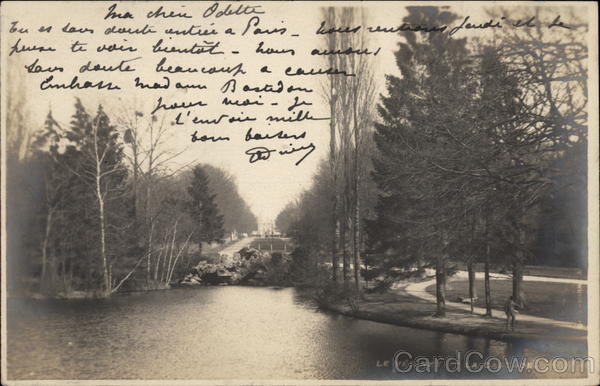 Ma chère Odette
Tu es sans doute entrée à Paris - nous rentrons Jeudi et je
pense te voir bientôt - nous aurons
sans doute beaucoup a causer
Embrasse Madame Bastidon
pour moi - Je
t'envoie mille
bons baisers
LE
CardCow.com